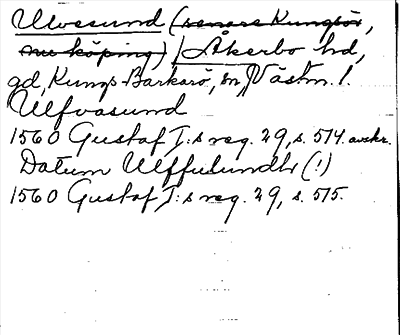 Ulvesund (senare Kungsör,
nu köping) / Åkerbo hd,
gd, Kungs-Barkarö, sn, Västm. l.
Ulfvasund
1560 Gustaf I:s reg. 29, s. 514. avskr.
Datum Ulffusundh (!)
1560 Gustaf I:s reg. 29, s. 515.